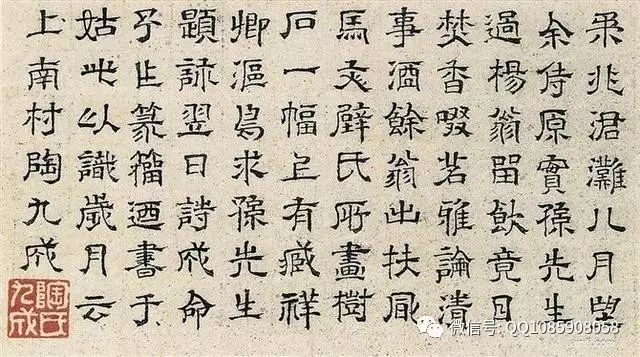 柔兆涒灘八月望
余侍原實孫先生
過楊翁留飲竟日
焚香啜茗雅論清
事酒餘翁出扶風
馬文璧氏所畫樹
石一幅上有臧祥
卿漚鳥求孫先生
題詠翌日詩成命
予作篆籀迺書于
姑此以識歲月云
上南村陶九成
陶氏
九成
微信号: QQ1085908058